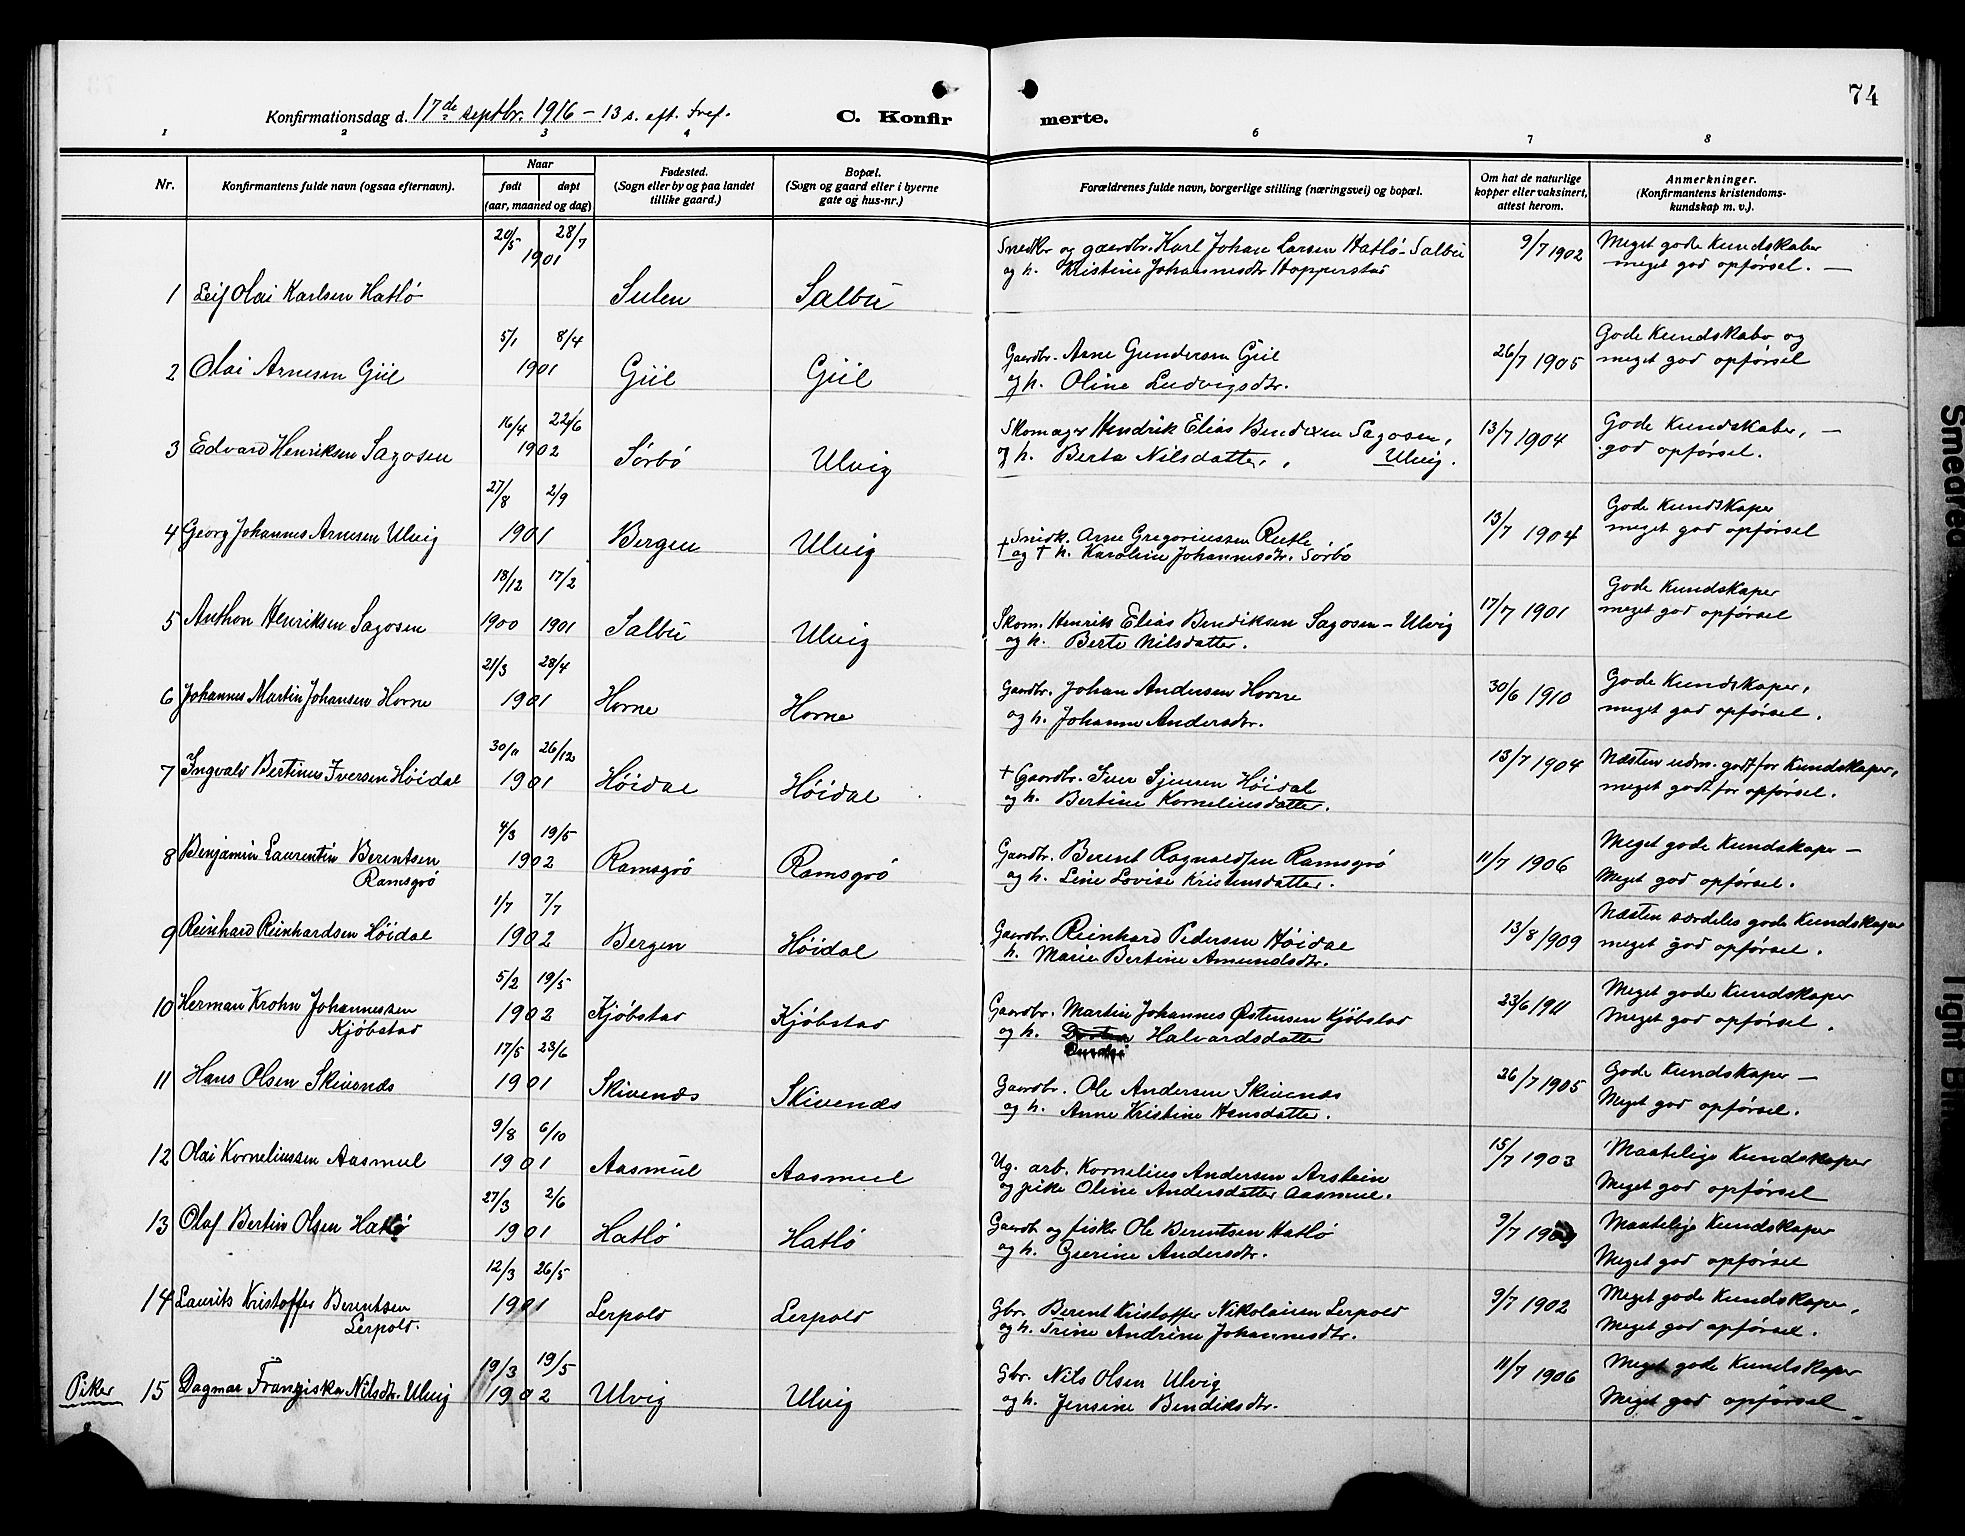 74
Konfirmationsdag d. 17de septbr. 1916 - 13 s. eft. tref.
C. Konfirmerte.
1 2 3 4 6 7 8
Nr.
Konfirmantens fulde navn (ogsaa efternavn).
Naar
født døpt
(aar, maaned og dag)
Fødested.
(Sogn eller by og paa landet
tillike gaard.)
Bopæl.
(Sogn og gaard eller i byerne
gate og hus-nr.)
Forældrenes fulde navn, borgerlige stilling (næringsvei) og bopæl.
Om hat de naturlige
kopper eller vaksinert,
attest herom.
Anmerkninger.
(Konfirmantens kristendoms-
kundskap m. v.).
20/5 28/7 Snedkr og gaardbr. Karl Johan Larsen Hatlö-Salbu 9/7 1902 Meget gode Kundskaber
1901 og h. Kristine Johannesdtr Hopperstad meget god opførsel. —
1 Leif Olai Karlsen Hatlö Sulen Salbu
5/1 8/4 Gode Kundskabr og
2 Olai Arnesen Giil 1901 Giil Giil Gaardbr. Arne Gundersen Giil 26/7 1905 meget god opførsel
og h. Oline Ludvigsdtr.
16/4 22/6 Skomager Hendrik Elias Bendixen Sagosen, 13/7 1904 Gode Kundskaber, —
3 Edvard Henriksen Sagosen 1902 Sörbö Ulvig og h. Berta Nilsdatter, , Ulvig. god opførsel.
27/8 2/9 Gode Kundskaper
4 Georg Johannes Arnesen Ulvig 1901 Bergen Ulvig † Snidk. Arne Gregoriussen Rutle 13/7 1904 meget god opførsel
og † h. Karoline Johannesdtr. Sörbö
18/12 17/2 Gode Kundskaper
5 Anthon Henriksen Sagosen 1900 1901 Salbu Ulvig Skom. Henrik Elias Bendiksen Sagosen - Ulvig 17/7 1901 meget god opførsel
og h. Berte Nilsdatter.
21/3 28/4 Gode Kundskaper,
6 Johannes Martin Johansen Horne 1901 Horne Horne Gaardbr. Johan Andersen Horne 30/6 1910 meget god opførsel.
og h. Johanne Andersdtr.
30/11 26/12 Næsten udm. godt for Kundskaper,
7 Ingvald Bertinus Iversen Höidal 1901 Höidal Höidal † Gaardbr. Iver Sjursen Höidal 13/7 1904 meget godt for opførsel.
og h. Bertine Korneliusdatter.
4/3 19/5 Meget gode Kundskaper —
8 Benjamin Laurentin Berentsen 1902 Ramsgrö Ramsgrö Gaardbr. Berent Ragnaldsen Ramsgrö 11/7 1906
Ramsgrö og h. Line Lovise Kristensdatter. Meget god opførsel.
1/7 7/7 Næsten særdeles gode Kundskaper
9 Reinhard Reinhardsen Höidal 1902 Bergen Höidal Gaardbr. Reinhard Pedersen Höidal 13/8 1909 meget god opførsel.
h. Marie Bertine Amundsdtr.
5/2 19/5 Meget gode Kundskaper
10 Herman Krohn Johannessen 1902 Kjöbstad Kjöbstad Gaardbr. Martin Johannes Östensen Kjöbstad 23/6 1911 Meget god opførsel.
Kjöbstad og h. Halvardsdatter
17/5 23/6 Gode Kundskaper —
11 Hans Olsen Skivenes 1901 Skivenes Skivenes Gaardbr. Ole Andersen Skivenes 26/7 1905 Meget god opførsel.
og h. Anne Kristine Hansdatter.
9/8 6/10
12 Olai Korneliussen Aasmul 1901 Aasmul Aasmul Ug. arb. Kornelius Andersen Arstein 15/7 1903 Maatelige Kundskaper
og pike Oline Andersdatter Aasmul. Meget god opførsel
27/3 2/6
13 Olaf Bertin Olsen Hatlö 1901 Hatlö Hatlö Gaardb og fisker Ole Berentsen Hatlö 9/7 Maatelige Kundskaper
og h. Gurine Andersdtr. Meget god opførsel
12/3 26/5 Meget gode Kundskaper,
14 Laurits Kristoffer Berentsen 1901 Lerpold Lerpold Gbr. Berent Kristoffer Nikolaisen Lerpold 9/7 1902
Lerpold. og h. Trine Andrine Johannesdtr. Meget god opførsel.
19/3 19/5 Meget gode Kundskaper
Piker 15 Dagmar Franziska Nilsdtr. Ulvig 1902 Ulvig Ulvig Gbr. Nils Olsen Ulvig 11/7 1906
og h. Jensine Bendiksdtr. Meget god opførsel
Smeared
Tight Bin